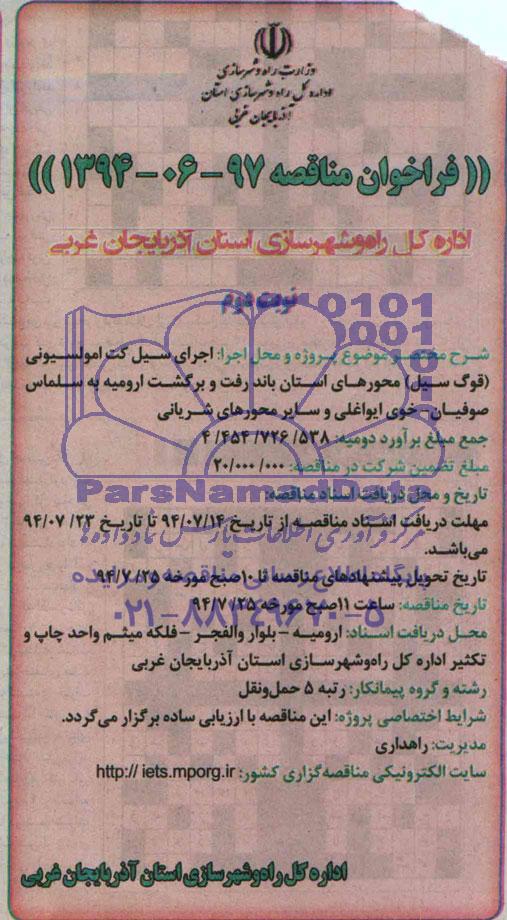 وزارت راه و شهرسازی
اداره کل راه و شهرسازی استان
آذربایجان غربی
(( فراخوان مناقصه ۹۷ - ۰۶ - ۱۳۹۴ ))
اداره کل راه‌وشهرسازی استان آذربایجان غربی
نوبت دوم
شرح مختصر موضوع پروژه و محل اجرا: اجرای سیل کت امولسیونی
(فوگ سیل) محورهای استان باند رفت و برگشت ارومیه به سلماس
صوفیان - خوی ایواغلی و سایر محورهای شریانی
جمع مبلغ برآورد دومیه: ۵۳۸/ ۷۲۶/ ۴۵۴/ ۴
مبلغ تضمین شرکت در مناقصه: ۰۰۰/ ۲۰/۰۰۰
تاریخ و محل دریافت اسناد مناقصه:
مهلت دریافت اسناد مناقصه از تاریخ ۹۴/۰۷/۱۴ تا تاریخ ۲۳/ ۰۷/ ۹۴
می‌باشد.
تاریخ تحویل پیشنهادهای مناقصه تا ۱۰ صبح مورخه ۹۴/۷/۲۵
تاریخ مناقصه: ساعت ۱۱ صبح مورخه ۹۴/۷/۲۵
محل دریافت اسناد: ارومیه - بلوار والفجر - فلکه میثم واحد چاپ و
تکثیر اداره کل راه‌وشهرسازی استان آذربایجان غربی
رشته و گروه پیمانکار: رتبه ۵ حمل‌ونقل
شرایط اختصاصی پروژه: این مناقصه با ارزیابی ساده برگزار می‌گردد.
مدیریت: راهداری
سایت الکترونیکی مناقصه‌گزاری کشور: http:// iets.mporg.ir
اداره کل راه‌وشهرسازی استان آذربایجان غربی
ParsNamadData
مرکز فرآوری اطلاعات پارس نماد داده ها
پایگاه اطلاع رسانی مناقصه و مزایده
۰۲۱-۸۸۳۴۹۶۷۰-۵